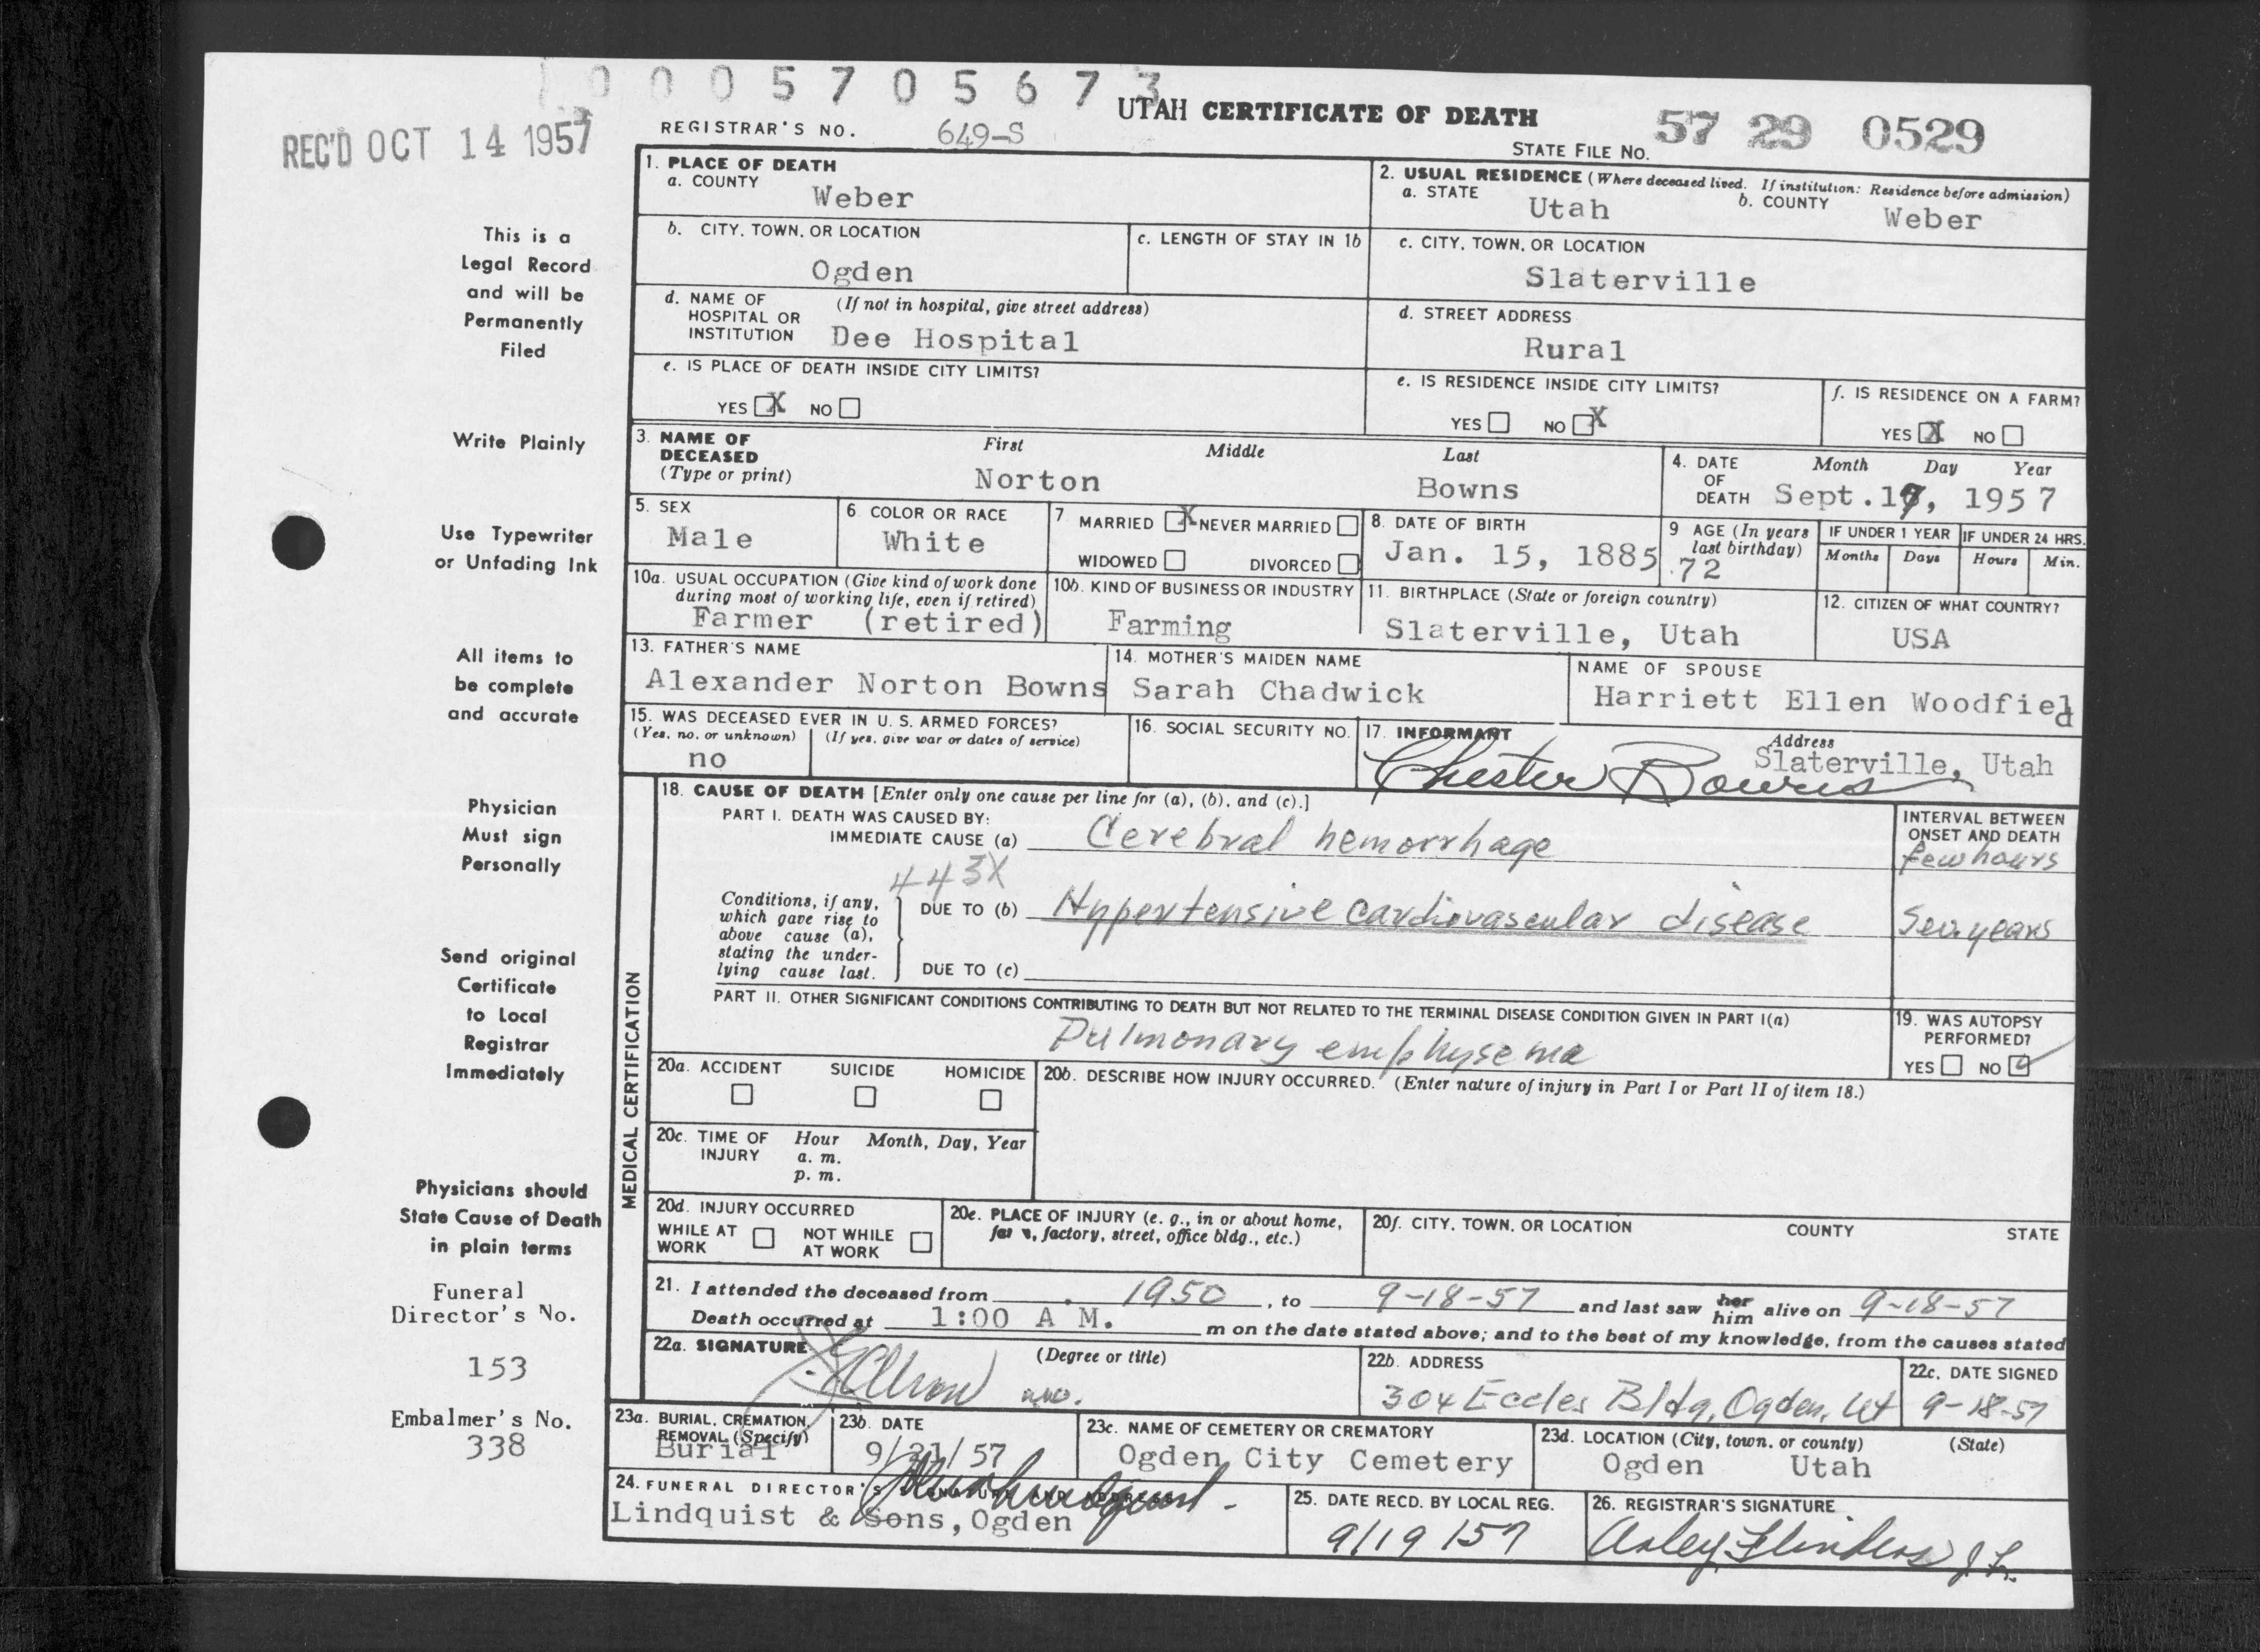 1000570567 3
REC'D OCT 14 1957
REGISTRAR'S NO. 649-S
UTAH CERTIFICATE OF DEATH
STATE FILE NO. 57 29 0529
This is a
Legal Record
and will be
Permanently
Filed
Write Plainly
Use Typewriter
or Unfading Ink
All items to
be complete
and accurate
Physician
Must sign
Personally
Send original
Certificate
to Local
Registrar
Immediately
Physicians should
State Cause of Death
in plain terms
Funeral
Director's No.
153
Embalmer's No.
338
1. PLACE OF DEATH
a. COUNTY Weber
2. USUAL RESIDENCE (Where deceased lived. If institution: Residence before admission)
a. STATE Utah b. COUNTY Weber
b. CITY, TOWN, OR LOCATION
Ogden
c. LENGTH OF STAY IN 1b
c. CITY, TOWN, OR LOCATION
Slaterville
d. NAME OF HOSPITAL OR INSTITUTION (If not in hospital, give street address)
Dee Hospital
d. STREET ADDRESS
Rural
e. IS PLACE OF DEATH INSIDE CITY LIMITS?
YES X NO
e. IS RESIDENCE INSIDE CITY LIMITS?
YES NO X
f. IS RESIDENCE ON A FARM?
YES X NO
3. NAME OF DECEASED (Type or print)
First Middle Last
Norton Bowns
4. DATE OF DEATH Month Day Year
Sept. 1, 1957
5. SEX
Male
6 COLOR OR RACE
White
7 MARRIED X NEVER MARRIED
WIDOWED DIVORCED
8. DATE OF BIRTH
Jan. 15, 1885
9 AGE (In years last birthday)
72
IF UNDER 1 YEAR
Months Days
IF UNDER 24 HRS.
Hours Min.
10a. USUAL OCCUPATION (Give kind of work done during most of working life, even if retired)
Farmer (retired)
10b. KIND OF BUSINESS OR INDUSTRY
Farming
11. BIRTHPLACE (State or foreign country)
Slaterville, Utah
12. CITIZEN OF WHAT COUNTRY?
USA
13. FATHER'S NAME
Alexander Norton Bowns
14. MOTHER'S MAIDEN NAME
Sarah Chadwick
NAME OF SPOUSE
Harriett Ellen Woodfield
15. WAS DECEASED EVER IN U. S. ARMED FORCES?
(Yes, no, or unknown) (If yes, give war or dates of service)
no
16. SOCIAL SECURITY NO.
17. INFORMANT Address
Chester Bowns Slaterville, Utah
MEDICAL CERTIFICATION
18. CAUSE OF DEATH [Enter only one cause per line for (a), (b), and (c).]
PART I. DEATH WAS CAUSED BY:
IMMEDIATE CAUSE (a) Cerebral hemorrhage
INTERVAL BETWEEN ONSET AND DEATH
few hours
443X
Conditions, if any, which gave rise to above cause (a), stating the underlying cause last.
DUE TO (b) Hypertensive cardiovascular disease
Sev. years
DUE TO (c)
PART II. OTHER SIGNIFICANT CONDITIONS CONTRIBUTING TO DEATH BUT NOT RELATED TO THE TERMINAL DISEASE CONDITION GIVEN IN PART I(a)
Pulmonary emphysema
19. WAS AUTOPSY PERFORMED?
YES NO ✓
20a. ACCIDENT SUICIDE HOMICIDE
20b. DESCRIBE HOW INJURY OCCURRED. (Enter nature of injury in Part I or Part II of item 18.)
20c. TIME OF INJURY Hour Month, Day, Year
a. m.
p. m.
20d. INJURY OCCURRED
WHILE AT WORK NOT WHILE AT WORK
20e. PLACE OF INJURY (e. g., in or about home, farm, factory, street, office bldg., etc.)
20f. CITY, TOWN, OR LOCATION COUNTY STATE
21. I attended the deceased from 1950, to 9-18-57 and last saw her him alive on 9-18-57
Death occurred at 1:00 A M. m on the date stated above; and to the best of my knowledge, from the causes stated
22a. SIGNATURE (Degree or title)
22b. ADDRESS
304 Eccles Bldg, Ogden, Ut
22c. DATE SIGNED
9-18-57
23a. BURIAL, CREMATION, REMOVAL (Specify)
Burial
23b. DATE
9/21/57
23c. NAME OF CEMETERY OR CREMATORY
Ogden City Cemetery
23d. LOCATION (City, town, or county) (State)
Ogden Utah
24. FUNERAL DIRECTOR'S SIGNATURE AND ADDRESS
Lindquist & Sons, Ogden
25. DATE RECD. BY LOCAL REG.
9/19/57
26. REGISTRAR'S SIGNATURE
Arley Flinders J.F.